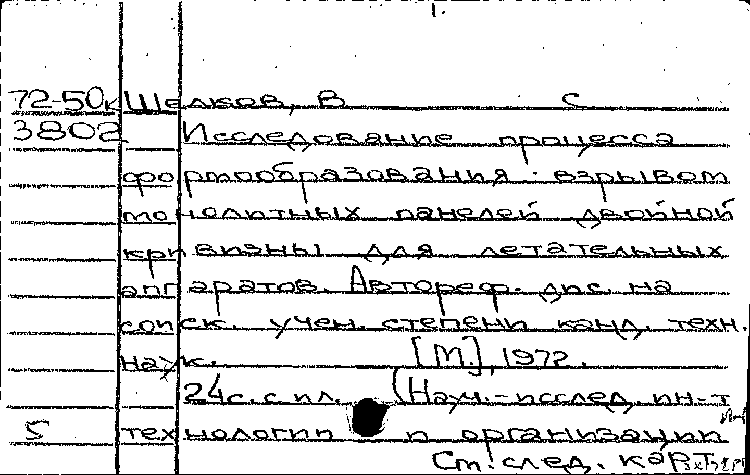 72-50к Шелков, В С
3802 Исследование процесса
формообразования взрывом
монолитных панелей двойной
кривизны для летательных
аппаратов. Автореф. дис. на
соиск. учен. степени канд. техн.
наук. [М.], 1972.
24с. с ил. (Науч.-исслед. ин-т
5 технологии и организации
См. след. карт.